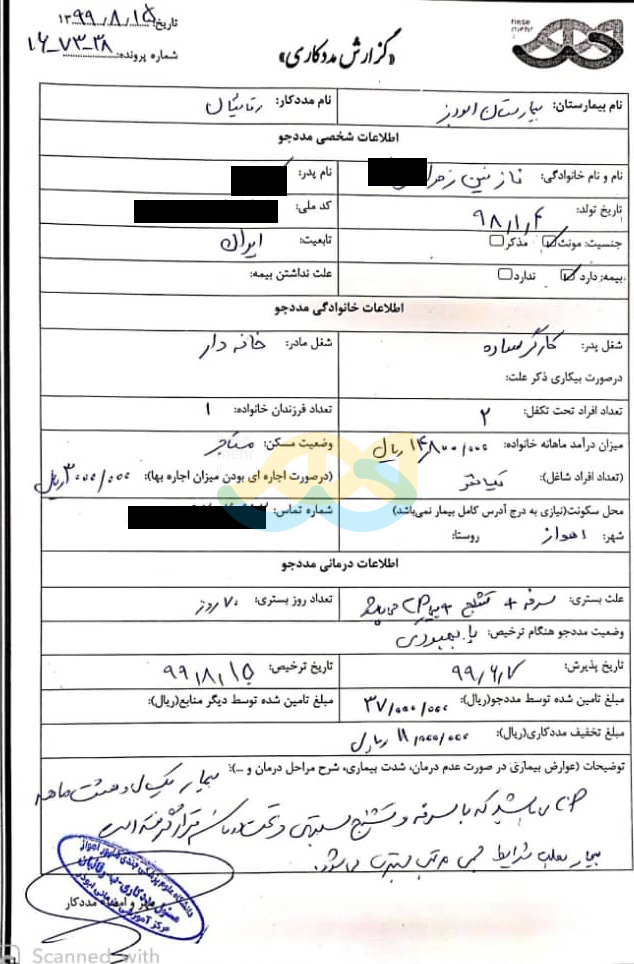 تاریخ: ۱۳۹۹/۸/۱۵
شماره پرونده: ۱۶-۷۳-۳۸
«گزارش مددکاری»
نام بیمارستان: بیمارستان ابوذر
نام مددکار:
اطلاعات شخصی مددجو
نام و نام خانوادگی: نازنین زهرا
نام پدر:
تاریخ تولد: ۹۸/۱/۴
کد ملی:
جنسیت: مونث مذکر
تابعیت: ایران
بیمه: دارد ندارد
علت نداشتن بیمه:
اطلاعات خانوادگی مددجو
شغل پدر: کارگر ساده
شغل مادر: خانه دار
درصورت بیکاری ذکر علت:
تعداد افراد تحت تکفل: ۲
تعداد فرزندان خانواده: ۱
میزان درآمد ماهانه خانواده: ۱۴/۸۰۰/۰۰۰ ریال
وضعیت مسکن: مستاجر
تعداد افراد شاغل: یک نفر
(درصورت اجاره ای بودن میزان اجاره بها): ۳۰۰۰/۰۰۰ ریال
محل سکونت(نیازی به درج آدرس کامل بیمار نمی‌باشد)
شماره تماس:
شهر: اهواز روستا:
اطلاعات درمانی مددجو
علت بستری: سرفه + تشنج + بیمار CP می باشد
تعداد روز بستری: ۷۰ روز
وضعیت مددجو هنگام ترخیص: با بهبودی
تاریخ پذیرش: ۹۹/۶/۷
تاریخ ترخیص: ۹۹/۸/۱۵
مبلغ تامین شده توسط مددجو(ریال): ۳۷/۰۰۰/۰۰۰
مبلغ تامین شده توسط دیگر منابع(ریال):
مبلغ تخفیف مددکاری(ریال): ۱۱/۰۰۰/۰۰۰ ریال
توضیحات (عوارض بیماری در صورت عدم درمان، شدت بیماری، شرح مراحل درمان و ...): بیمار یک سال و هشت ماهه
می باشد که با سرفه و تشنج بستری و تحت درمان قرار گرفته است
بیمار بعلت شرایط جسمی مرتب بستری می شود.
مهر و امضاء مددکار
دانشگاه علوم پزشکی جندی شاپور اهواز
مسئول مددکاری
مرکز آموزشی درمانی ابوذر
Scanned with